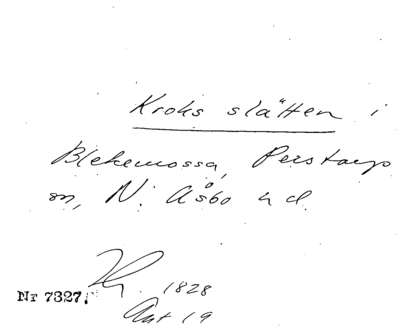 Kroks slätten i
Blekemossa, Perstorp
sn, N. Åsbo hd.
1828
Nr 7327. Ant 19